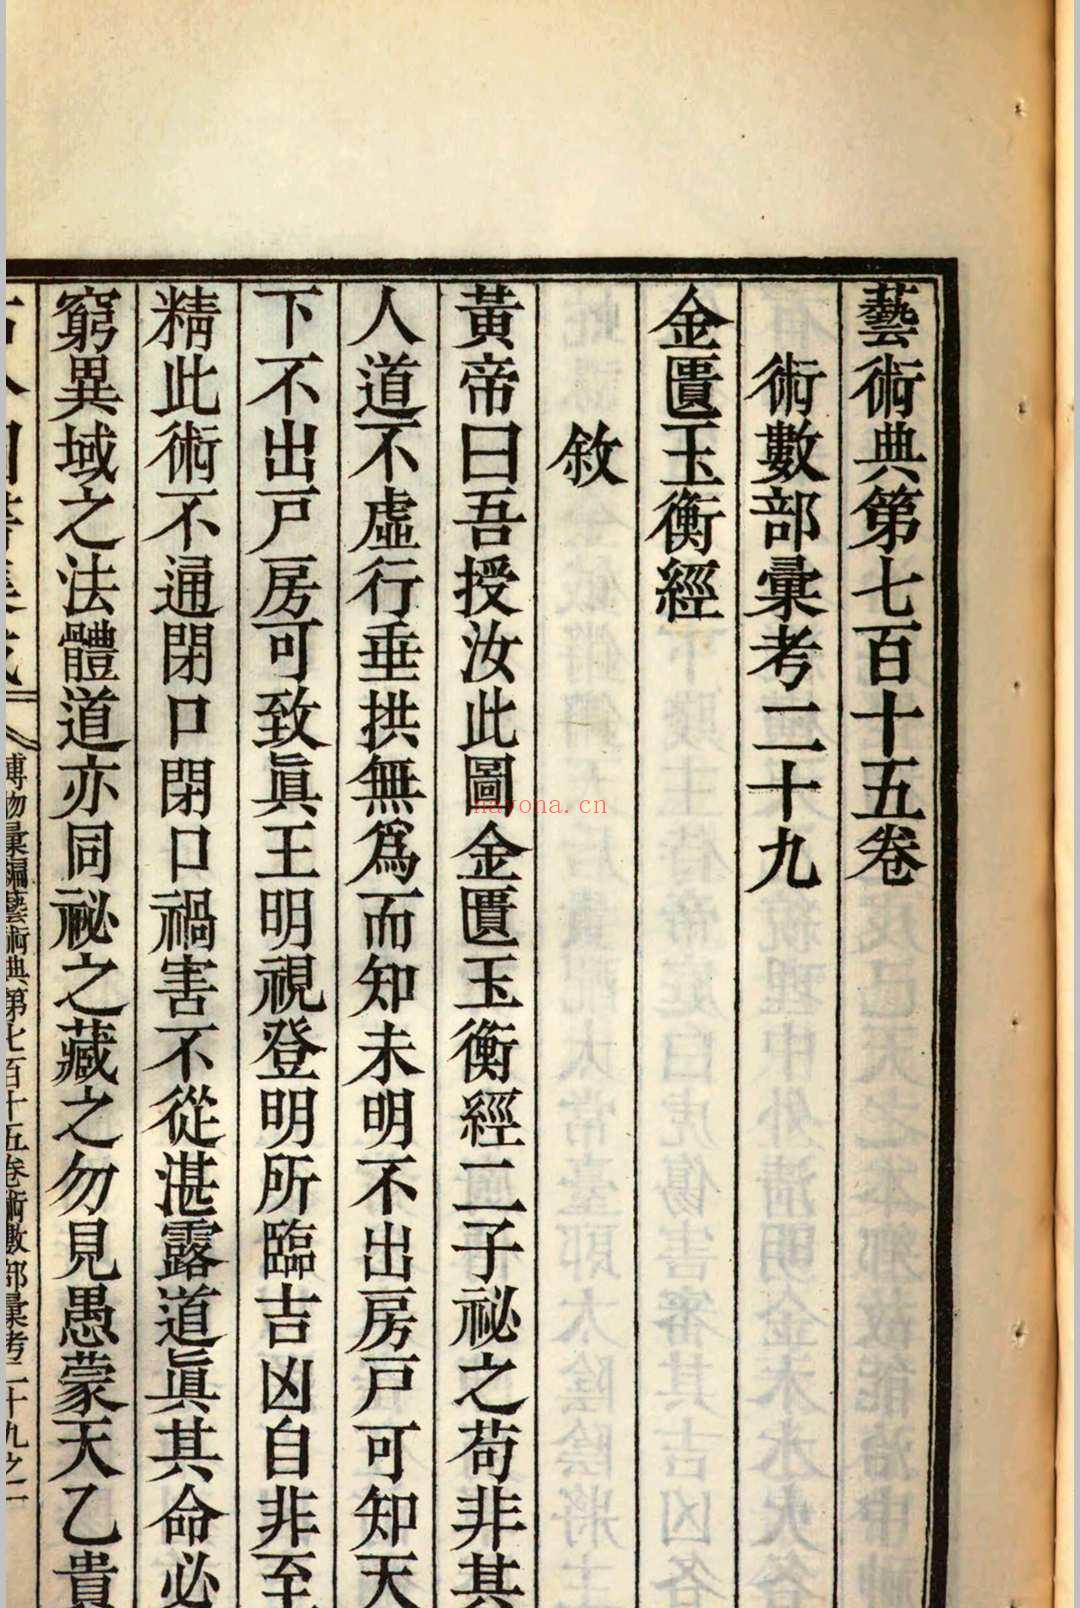 藝術典第七百十五卷
術數部彙考二十九
金匱玉衡經
敘
黃帝曰吾授汝此圖金匱玉衡經二子祕之苟非其
人道不虛行垂拱無爲而知未明不出房戶可知天
下不出戶房可致眞王明視登明所臨吉凶自非至
精此術不通閉口閉口禍害不從湛露道眞其命必
窮異域之法體道亦同祕之藏之勿見愚蒙天乙貴
博物彙編藝術典第七百十五卷術數部彙考二十九之一
nayona.cn